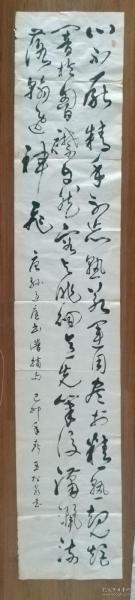 心不厭精手不忘熟若運用盡於精熟規矩
闇於胸襟自然容與徘徊意先筆後瀟灑流
落翰逸神飛
唐孫過庭書譜摘句 己卯年 書